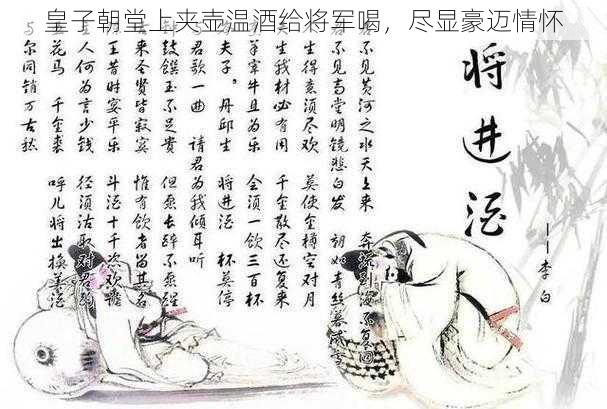 皇子朝堂上夹壶温酒给将军喝，尽显豪迈情怀
将进酒
——李白
君不见黄河之水天上来 奔流到海不复回
君不见高堂明镜悲白发 朝如青丝暮成雪
人生得意须尽欢 莫使金樽空对月
天生我材必有用 千金散尽还复来
烹羊宰牛且为乐 会须一饮三百杯
岑夫子，丹邱生 将进酒 杯莫停
与君歌一曲 请君为我倾耳听
钟鼓馔玉不足贵 但愿长醉不愿醒
古来圣贤皆寂寞 惟有饮者留其名
陈王昔时宴平乐 斗酒十千恣欢谑
主人何为言少钱 径须沽取对君酌
五花马 千金裘 呼儿将出换美酒
与尔同销万古愁